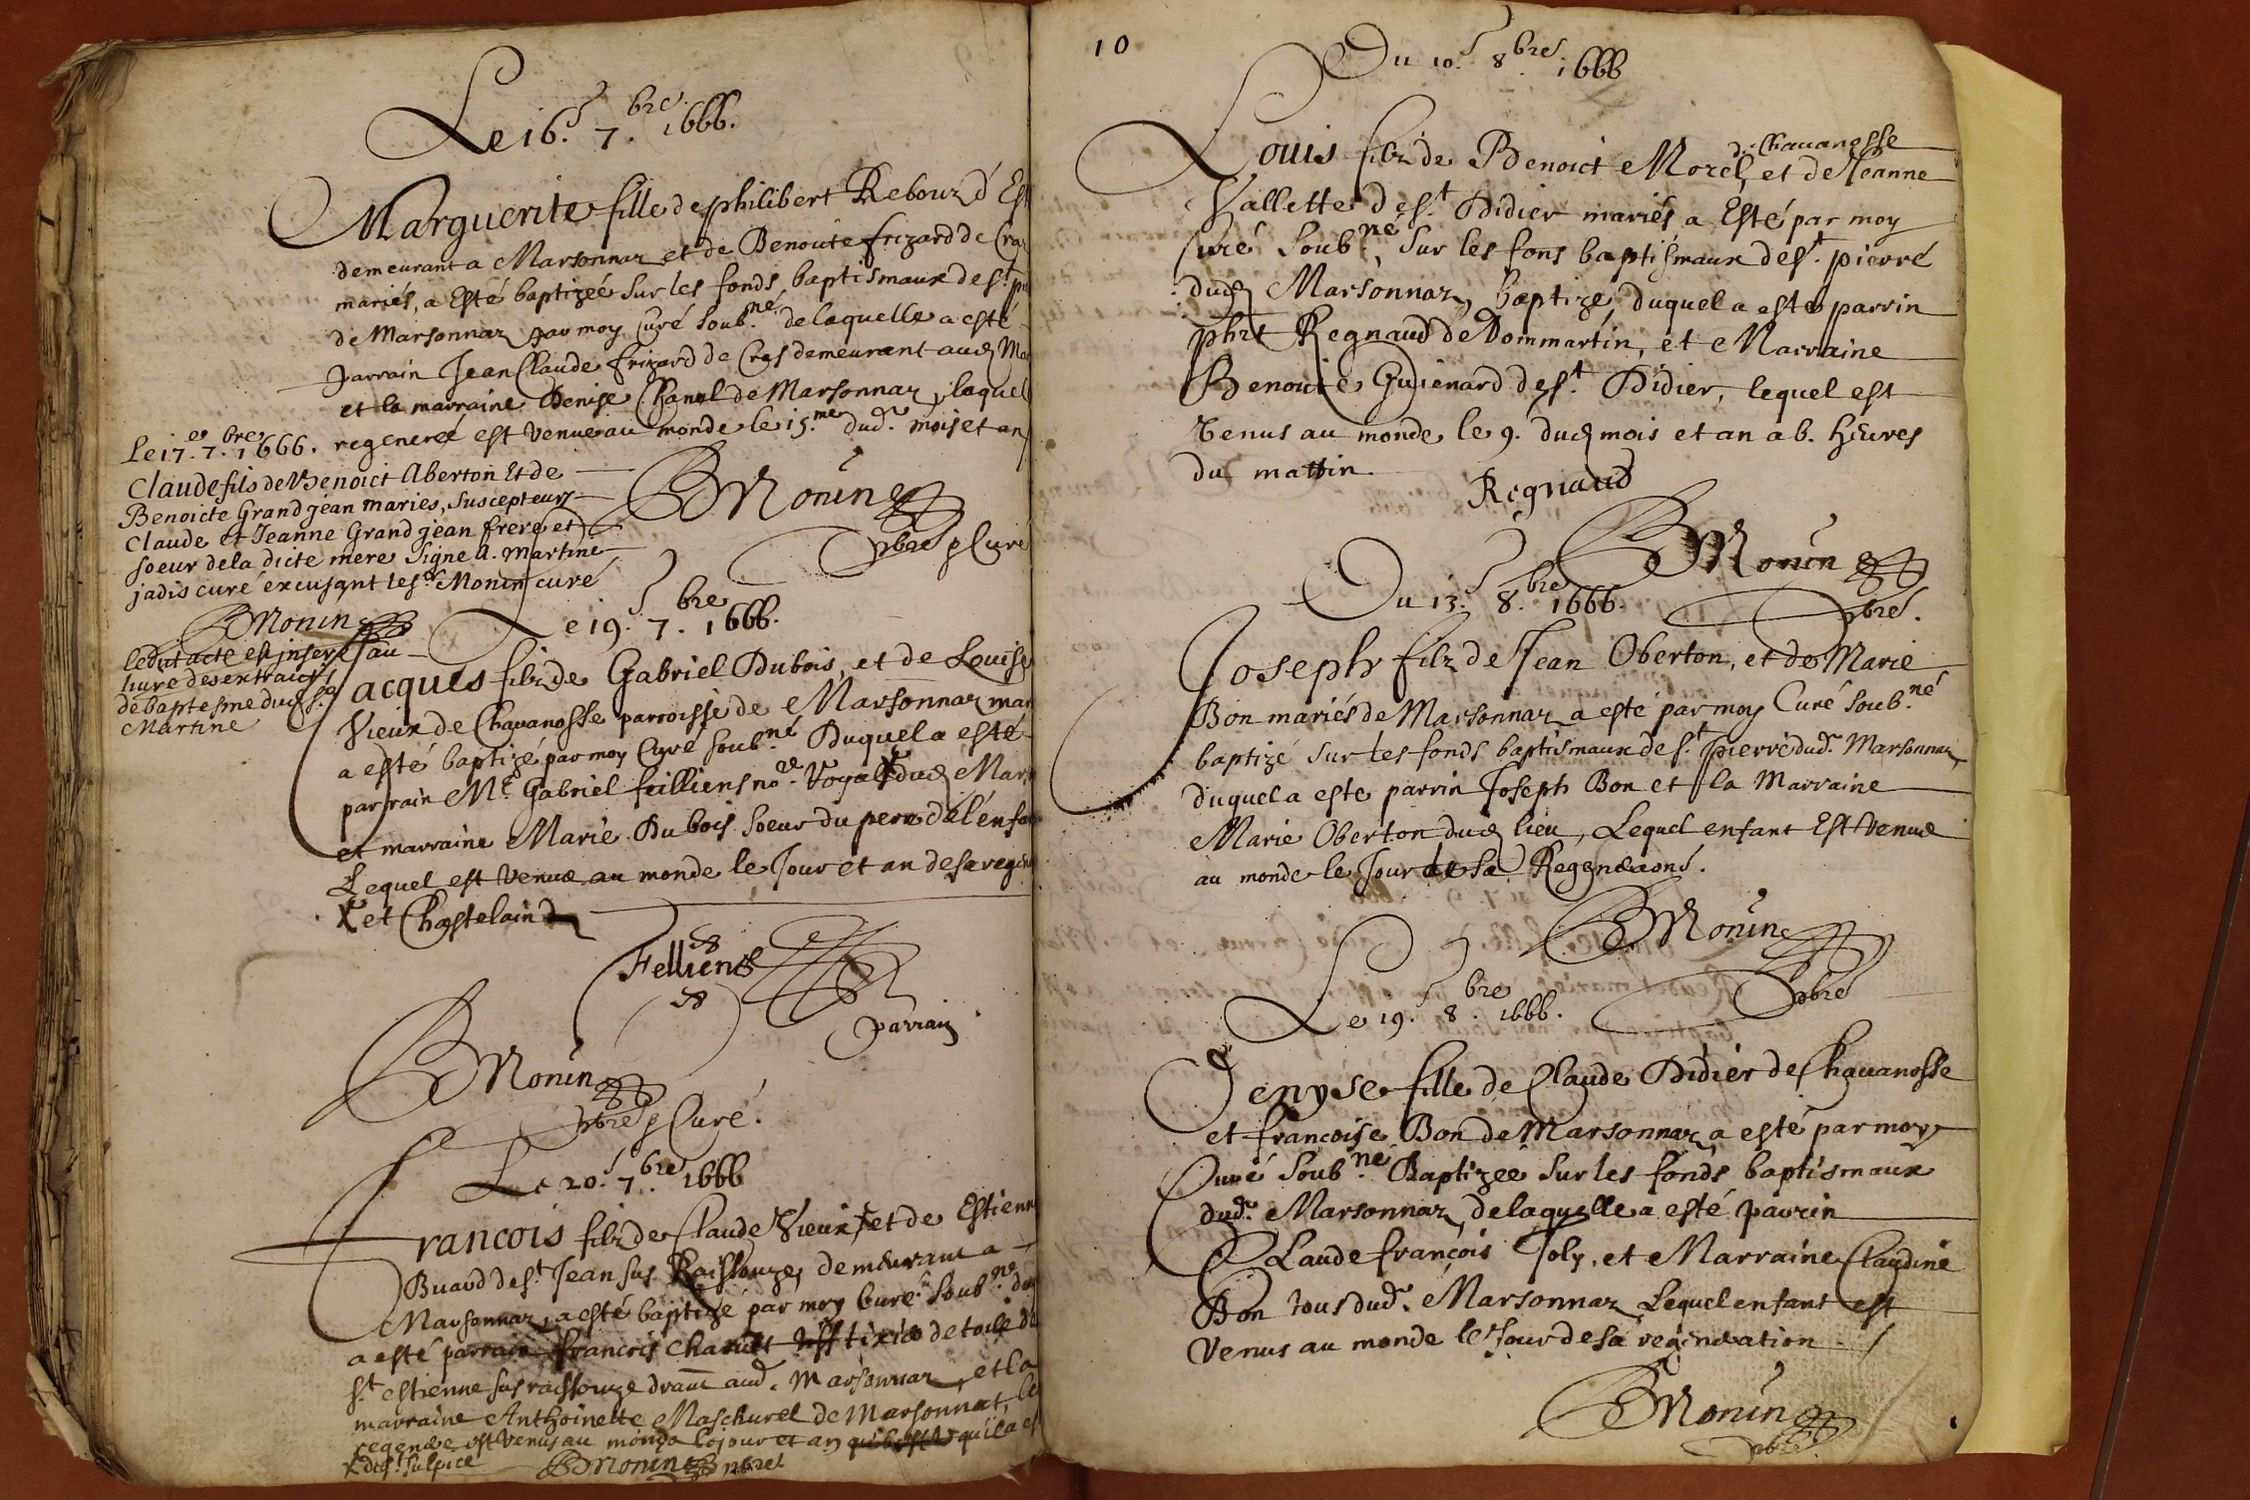 Le 16. 7.bre 1666.
Marguerite fille de philibert Rebour d'Est
demeurant a Marsonnaz et de Benoite frizard de Cras
mariés, a Esté baptizée sur les fonds baptismaux de st.
de Marsonnaz par moy Curé soub.né delaquelle a esté
parrain Jean Claude frizard de Cras demeurant aud
et la marraine Denise Chanel de Marsonnaz, laquel
regeneré est venue au monde le 15.me dud. mois et an
BMonin
pbre Curé
Le 17. 7.bre 1666.
Claude fils de Benoict Aberton Et de
Benoicte Grandjean mariés, suscepteurs
Claude et Jeanne Grandjean frere et
soeur de la dicte mere signe A. Martine
jadis curé excusant le sr Monin curé
BMonin
ledit acte est inseré au
livre des extraicts
de baptesme dud sr
Martine
Le 19. 7.bre 1666.
Jacques filz de Gabriel Dubois, et de Louise
Vieux de Chavanosse parroisse de Marsonnaz mar
a esté baptizé par moy Curé soub.né Duquel a esté
parrain Me. Gabriel feilliens no.re Royal X dud Mar
et marraine Marie Dubois soeur du pere de l'enfa
Lequel est venue au monde le Jour et an de sa regn
X et Chastelain
Felliens
parrain
BMonin
pbre Curé.
Le 20. 7.bre 1666
Francois filz de Claude Vieux X et de Estienn
Buaud de st. Jean sus Raissouze demeurant a
Marsonnaz, a esté baptizé par moy Curé soub.né du
a esté parrain francois Chanut tixier de toile de
st. estienne sus raissouze aud. Marsonnaz, et la
marraine Anthoinette Maschurel de Marsonnat, le
regenere est venus au monde le jour et an qu'il a
X de st. sulpice
BMonin pbre
10
Du 10. 8.bre 1666
Louis filz de Benoict Morel, de Chavanosse et de Jeanne
Vallette de st. Didier mariés a Esté par moy
Curé soub.né, sur les fons baptismaux de st. pierre
dud Marsonnaz, baptize, duquel a este parrin
phrt Regnaud de Dommartin, et Marraine
Benoite Guienard de st. Didier, lequel est
Venus au monde le 9. dud mois et an a 6. heures
du mattin.
Regnaud
BMonin
pbre.
Du 13. 8.bre 1666.
Joseph filz de Jean Oberton, et de Marie
Bon mariés de Marsonnaz a esté par moy Curé soub.né
baptizé sur les fonds baptismaux de st. pierre dud. Marsonnaz,
duquel a este parrin Joseph Bon et la Marraine
Marie Oberton dud lieu, Lequel enfant Est venue
au monde le Jour de sa
BMonin
pbre
Le 19. 8.bre 1666.
Denyse fille de Claude Didier de Chavanosse
et francoise Bon de Marsonnaz a esté par moy
Curé soub.né Baptizée sur les fonds baptismaux
dud. Marsonnaz, delaquelle a esté parrin
Claude françois Joly, et Marraine Claudine
Bon tous dud. Marsonnaz Lequel enfant est
Venus au monde le Jour de sa regeneration.
BMonin
pbre